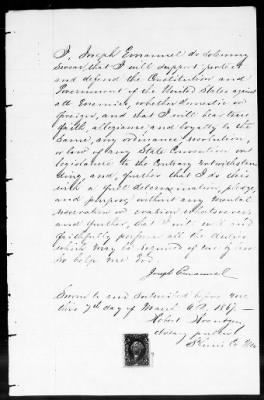 I, Joseph Emanuel do Solemnly
Swear, that I will support, protect
and defend the Constitution and
Government of the United States against
all Enemies, whether domestic or
foreign, and that I will bear true
faith, allegiance and loyalty to the
Same, any ordinance, resolution,
or law of any State Convention or
legislature to the Contrary notwithstan
ding, and, further that I do this
with a full determination, pledge,
and purpose, without any mental
reservation or evasion whatsoever,
and further, that I will well and
faithfully perform all the duties
which may be required of me by law
So help me God.
Joseph Emanuel
Sworn to and Subscribed before me
this 7th day of March A.D. 1867
Notary public
St Louis Co Mo